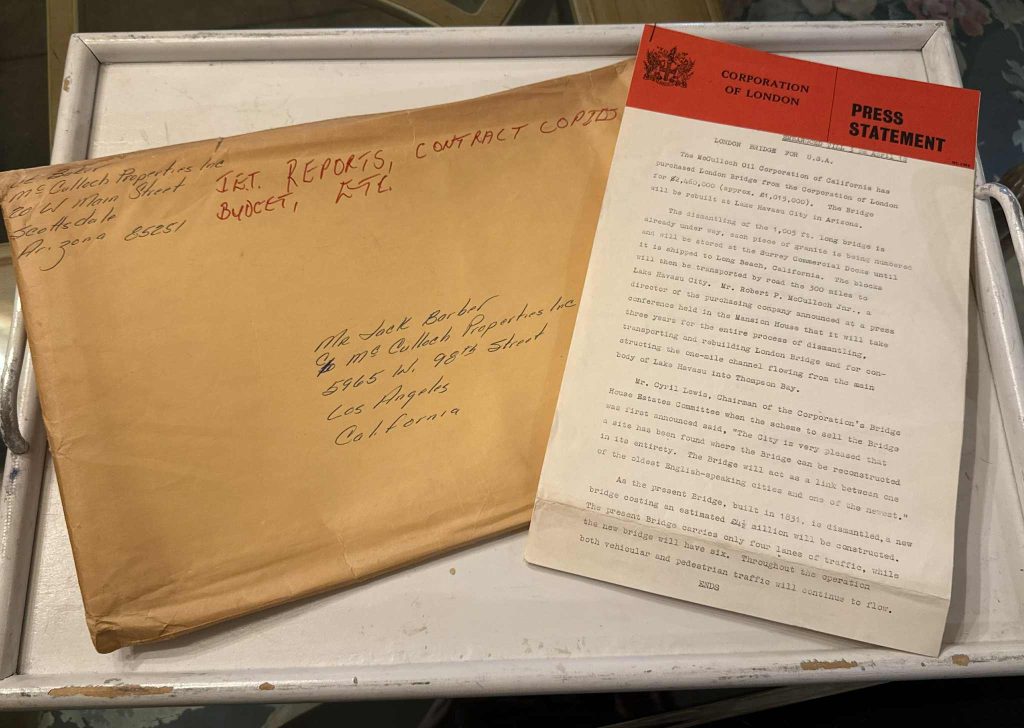 Barber
Mc Culloch Properties Inc
W Main Street
Scottsdale
Arizona 85251
REPORTS, CONTRACT COPIES
BUDGET, ETC.
Mr Jack Barber
c/o Mc Culloch Properties Inc
5965 W. 98th Street
Los Angeles
California
CORPORATION
OF LONDON
PRESS
STATEMENT
LONDON BRIDGE FOR U.S.A.
The McCulloch Oil Corporation of California has
purchased London Bridge from the Corporation of London
for $2,460,000 (approx. £1,013,000). The Bridge
will be rebuilt at Lake Havasu City in Arizona.
The dismantling of the 1,005 ft. long bridge is
already under way, each piece of granite is being numbered
and will be stored at the Surrey Commercial Docks until
it is shipped to Long Beach, California. The blocks
will then be transported by road the 300 miles to
Lake Havasu City. Mr. Robert P. McCulloch Jnr., a
director of the purchasing company announced at a press
conference held in the Mansion House that it will take
three years for the entire process of dismantling,
transporting and rebuilding London Bridge and for con-
structing the one-mile channel flowing from the main
body of Lake Havasu into Thompson Bay.
Mr. Cyril Lewis, Chairman of the Corporation's Bridge
House Estates Committee when the scheme to sell the Bridge
was first announced said, "The City is very pleased that
a site has been found where the Bridge can be reconstructed
in its entirety. The Bridge will act as a link between one
of the oldest English-speaking cities and one of the newest."
As the present Bridge, built in 1831, is dismantled, a new
bridge costing an estimated £4½ million will be constructed.
The present Bridge carries only four lanes of traffic, while
the new bridge will have six. Throughout the operation
both vehicular and pedestrian traffic will continue to flow.
ENDS